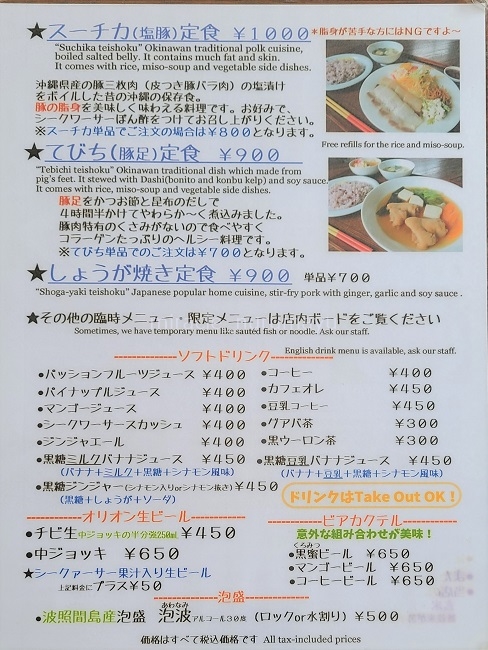 ★スーチカ(塩豚)定食 ￥1000 *脂身が苦手な方にはNGですよ～
“Suchika teishoku” Okinawan traditional polk cuisine,
boiled salted belly. It contains much fat and skin.
It comes with rice, miso-soup and vegetable side dishes.
沖縄県産の豚三枚肉（皮つき豚バラ肉）の塩漬け
をボイルした昔の沖縄の保存食。
豚の脂身を美味しく味わえる料理です。お好みで、
シークワーサーぽん酢をつけてお召し上がりください。
※スーチカ単品でご注文の場合は￥800となります。
Free refills for the rice and miso-soup.
★てびち(豚足)定食 ￥900
“Tebichi teishoku” Okinawan traditional dish which made from
pig's feet. It stewed with Dashi(bonito and konbu kelp) and soy sauce.
It comes with rice, miso-soup and vegetable side dishes.
豚足をかつお節と昆布のだしで
４時間半かけてやわらか～く煮込みました。
豚肉特有のくさみがないので食べやすく
コラーゲンたっぷりのヘルシー料理です。
※てびち単品でのご注文は￥700となります。
★しょうが焼き定食 ￥900 単品￥700
“Shoga-yaki teishoku” Japanese popular home cuisine, stir-fry pork with ginger, garlic and soy sauce .
★その他の臨時メニュー・限定メニューは店内ボードをご覧ください
Sometimes, we have temporary menu like sautéd fish or noodle. Ask our staff.
English drink menu is available, ask our staff.
ソフトドリンク
•パッションフルーツジュース ￥400
•パイナップルジュース ￥400
•マンゴージュース ￥400
•シークワーサースカッシュ ￥400
•ジンジャエール ￥400
•黒糖ミルクバナナジュース ￥400
(バナナ＋ミルク＋黒糖＋シナモン風味)
•黒糖ジンジャー(シナモン入りorシナモン抜き)￥450
(黒糖＋しょうが＋ソーダ)
•コーヒー ￥400
•カフェオレ ￥450
•豆乳コーヒー ￥450
•グアバ茶 ￥300
•黒ウーロン茶 ￥300
•黒糖豆乳バナナジュース ￥450
(バナナ＋豆乳＋黒糖＋シナモン風味)
ドリンクはTake Out OK！
オリオン生ビール
•チビ生中ジョッキの半分強250ml ￥450
•中ジョッキ ￥650
★シークァーサー果汁入り生ビール
上記料金にプラス￥50
ビアカクテル
意外な組み合わせが美味！
くろみつ
•黒蜜ビール ￥650
•マンゴービール ￥650
•コーヒービール ￥650
泡盛
あわなみ
•波照間島産泡盛 泡波アルコール30度 (ロックor水割り) ￥500
価格はすべて税込価格です All tax-included prices